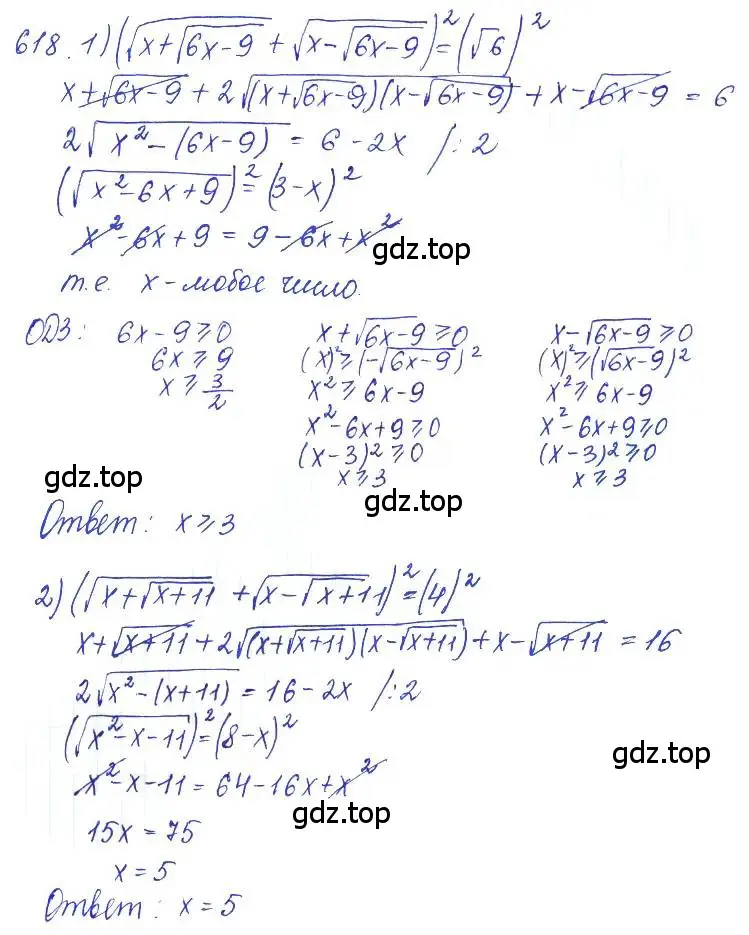 618. 1) (√(x+√(6x-9)) + √(x-√(6x-9)))² = (√6)²
x+√(6x-9) + 2√((x+√(6x-9))(x-√(6x-9))) + x-√(6x-9) = 6
2√(x²-(6x-9)) = 6-2x /:2
(√(x²-6x+9))² = (3-x)²
x²-6x+9 = 9-6x+x²
gdz.top
т.е. x-любое число.
ОДЗ: 6x-9⩾0 x+√(6x-9)⩾0 x-√(6x-9)⩾0
6x⩾9 (x)²⩾(-√(6x-9))² (x)²⩾(√(6x-9))²
x⩾3/2 x²⩾6x-9 x²⩾6x-9
x²-6x+9⩾0 x²-6x+9⩾0
(x-3)²⩾0 (x-3)²⩾0
gdz.top x⩾3 x⩾3
gdz.top gdz.top
Ответ: x⩾3
2) (√(x+√(x+11)) + √(x-√(x+11)))² = (4)²
x+√(x+11) + 2√((x+√(x+11))(x-√(x+11))) + x-√(x+11) = 16
2√(x²-(x+11)) = 16-2x /:2
(√(x²-x-11))² = (8-x)²
gdz.top
x²-x-11 = 64-16x+x²
gdz.top
15x = 75
x = 5
Ответ: x = 5